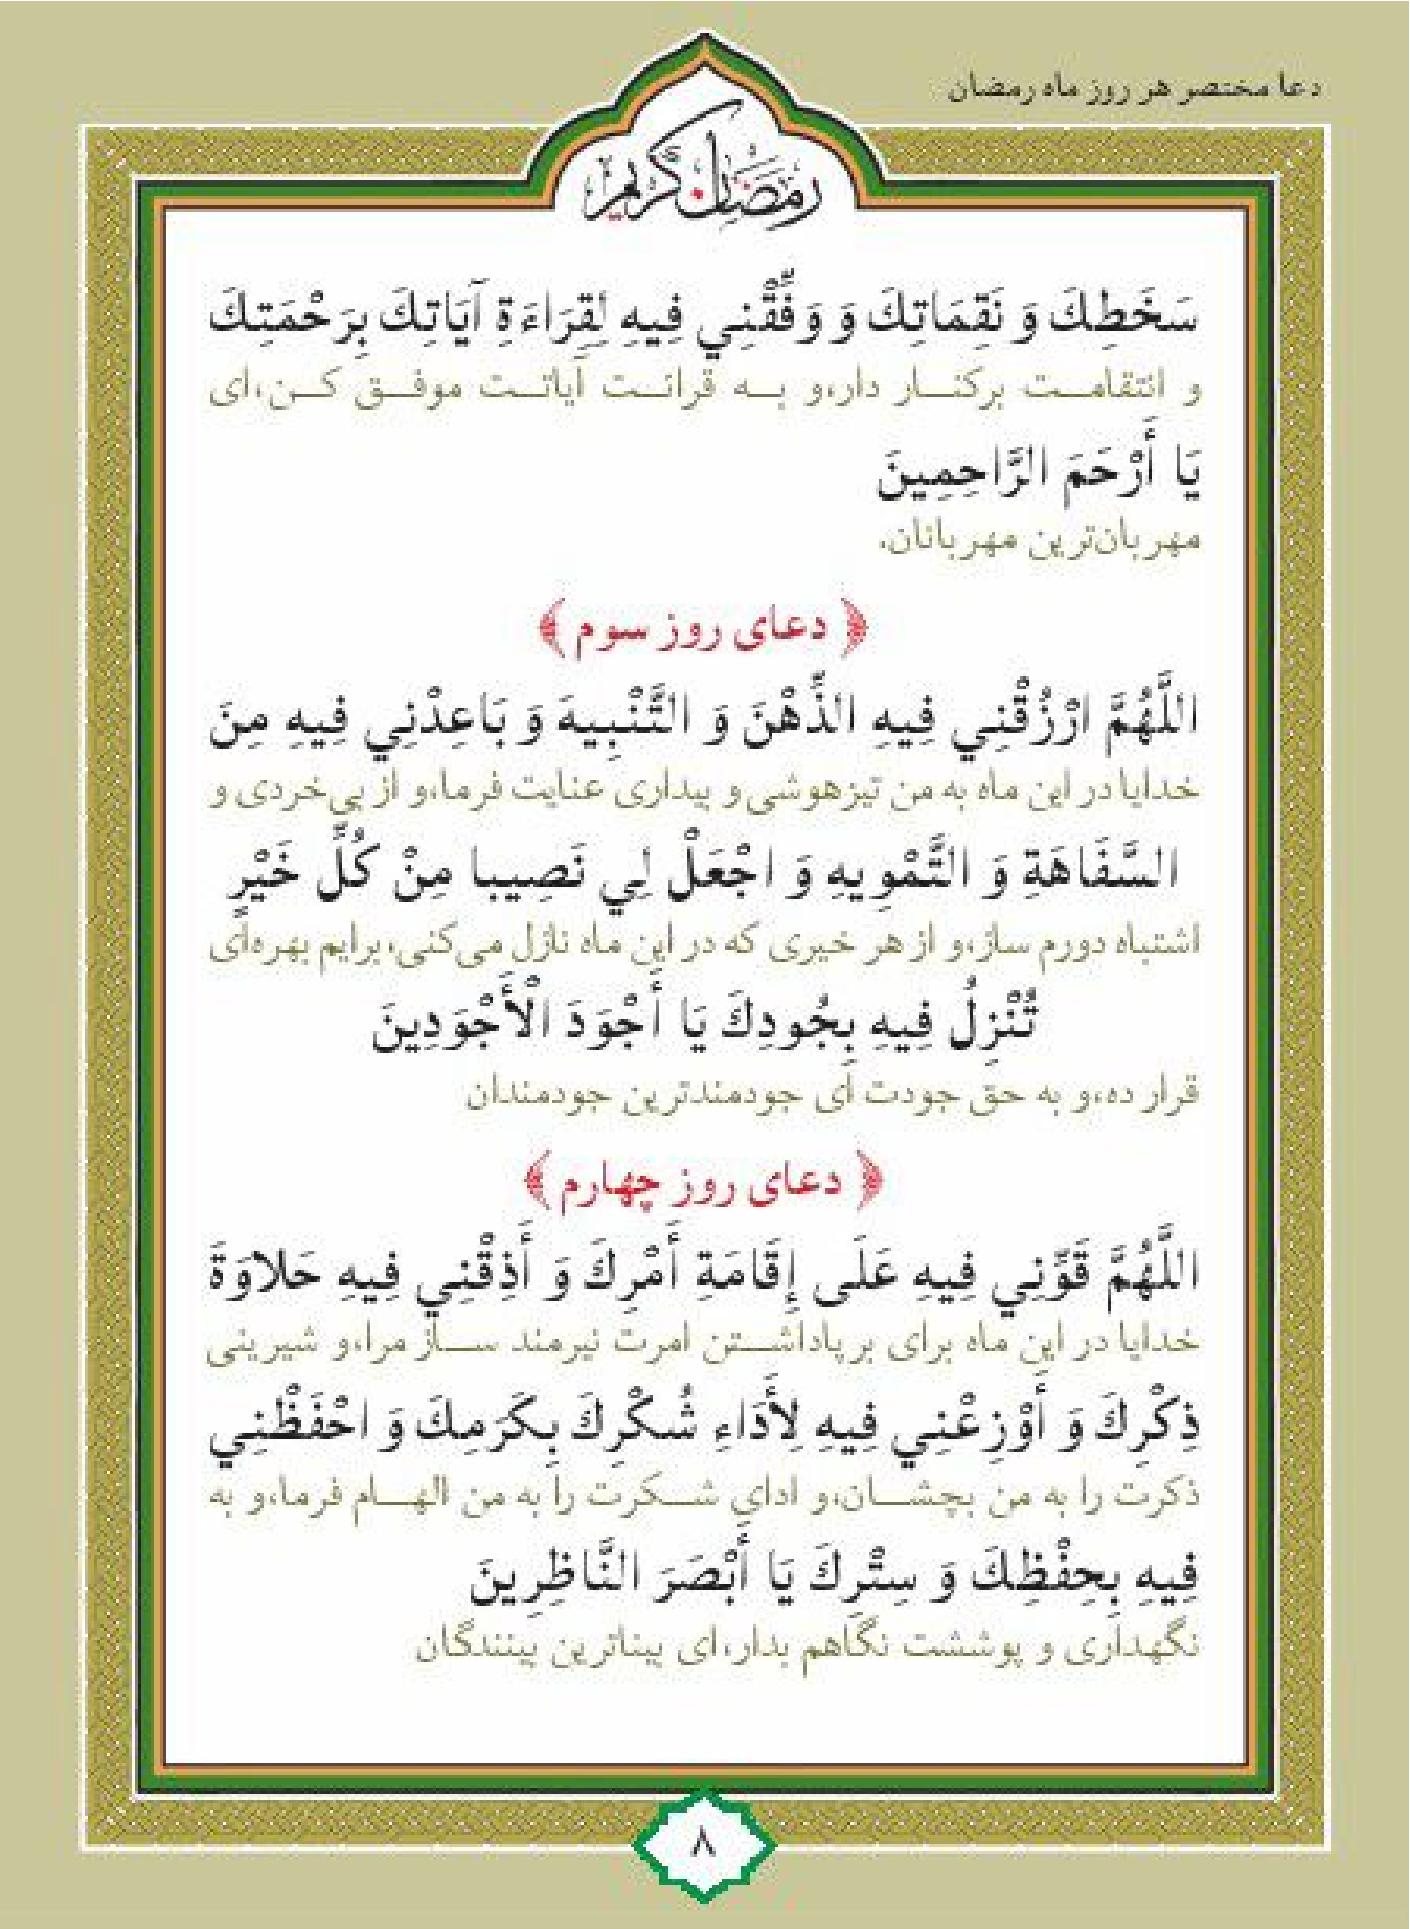 دعا مختصر هر روز ماه رمضان
رمضان كريم
سَخَطِكَ وَ نَقِمَاتِكَ وَ وَفِّقْنِي فِيهِ لِقِرَاءَةِ آيَاتِكَ بِرَحْمَتِكَ
و انتقامـت برکنـار دار،و بـه قرائـت آیاتـت موفـق کـن،ای
يَا أَرْحَمَ الرَّاحِمِينَ
مهربان‌ترین مهربانان.
﴿ دعای روز سوم ﴾
اللَّهُمَّ ارْزُقْنِي فِيهِ الذِّهْنَ وَ التَّنْبِيهَ وَ بَاعِدْنِي فِيهِ مِنَ
خدایا در این ماه به من تیزهوشی و بیداری عنایت فرما،و از بی‌خردی و
السَّفَاهَةِ وَ التَّمْوِيهِ وَ اجْعَلْ لِي نَصِيبا مِنْ كُلِّ خَيْرٍ
اشتباه دورم ساز،و از هر خیری که در این ماه نازل می‌کنی،برایم بهره‌ای
تُنْزِلُ فِيهِ بِجُودِكَ يَا أَجْوَدَ الْأَجْوَدِينَ
قرار ده،و به حق جودت ای جودمندترین جودمندان
﴿ دعای روز چهارم ﴾
اللَّهُمَّ قَوِّنِي فِيهِ عَلَى إِقَامَةِ أَمْرِكَ وَ أَذِقْنِي فِيهِ حَلاوَةَ
خدایا در این ماه برای برپاداشـتن امرت نیرمند سـاز مرا،و شیرینی
ذِكْرِكَ وَ أَوْزِعْنِي فِيهِ لِأَدَاءِ شُكْرِكَ بِكَرَمِكَ وَ احْفَظْنِي
ذکرت را به من بچشـان،و ادای شـکرت را به من الهـام فرما،و به
فِيهِ بِحِفْظِكَ وَ سِتْرِكَ يَا أَبْصَرَ النَّاظِرِينَ
نگهداری و پوششت نگاهم بدار،ای بیناترین بینندگان
۸